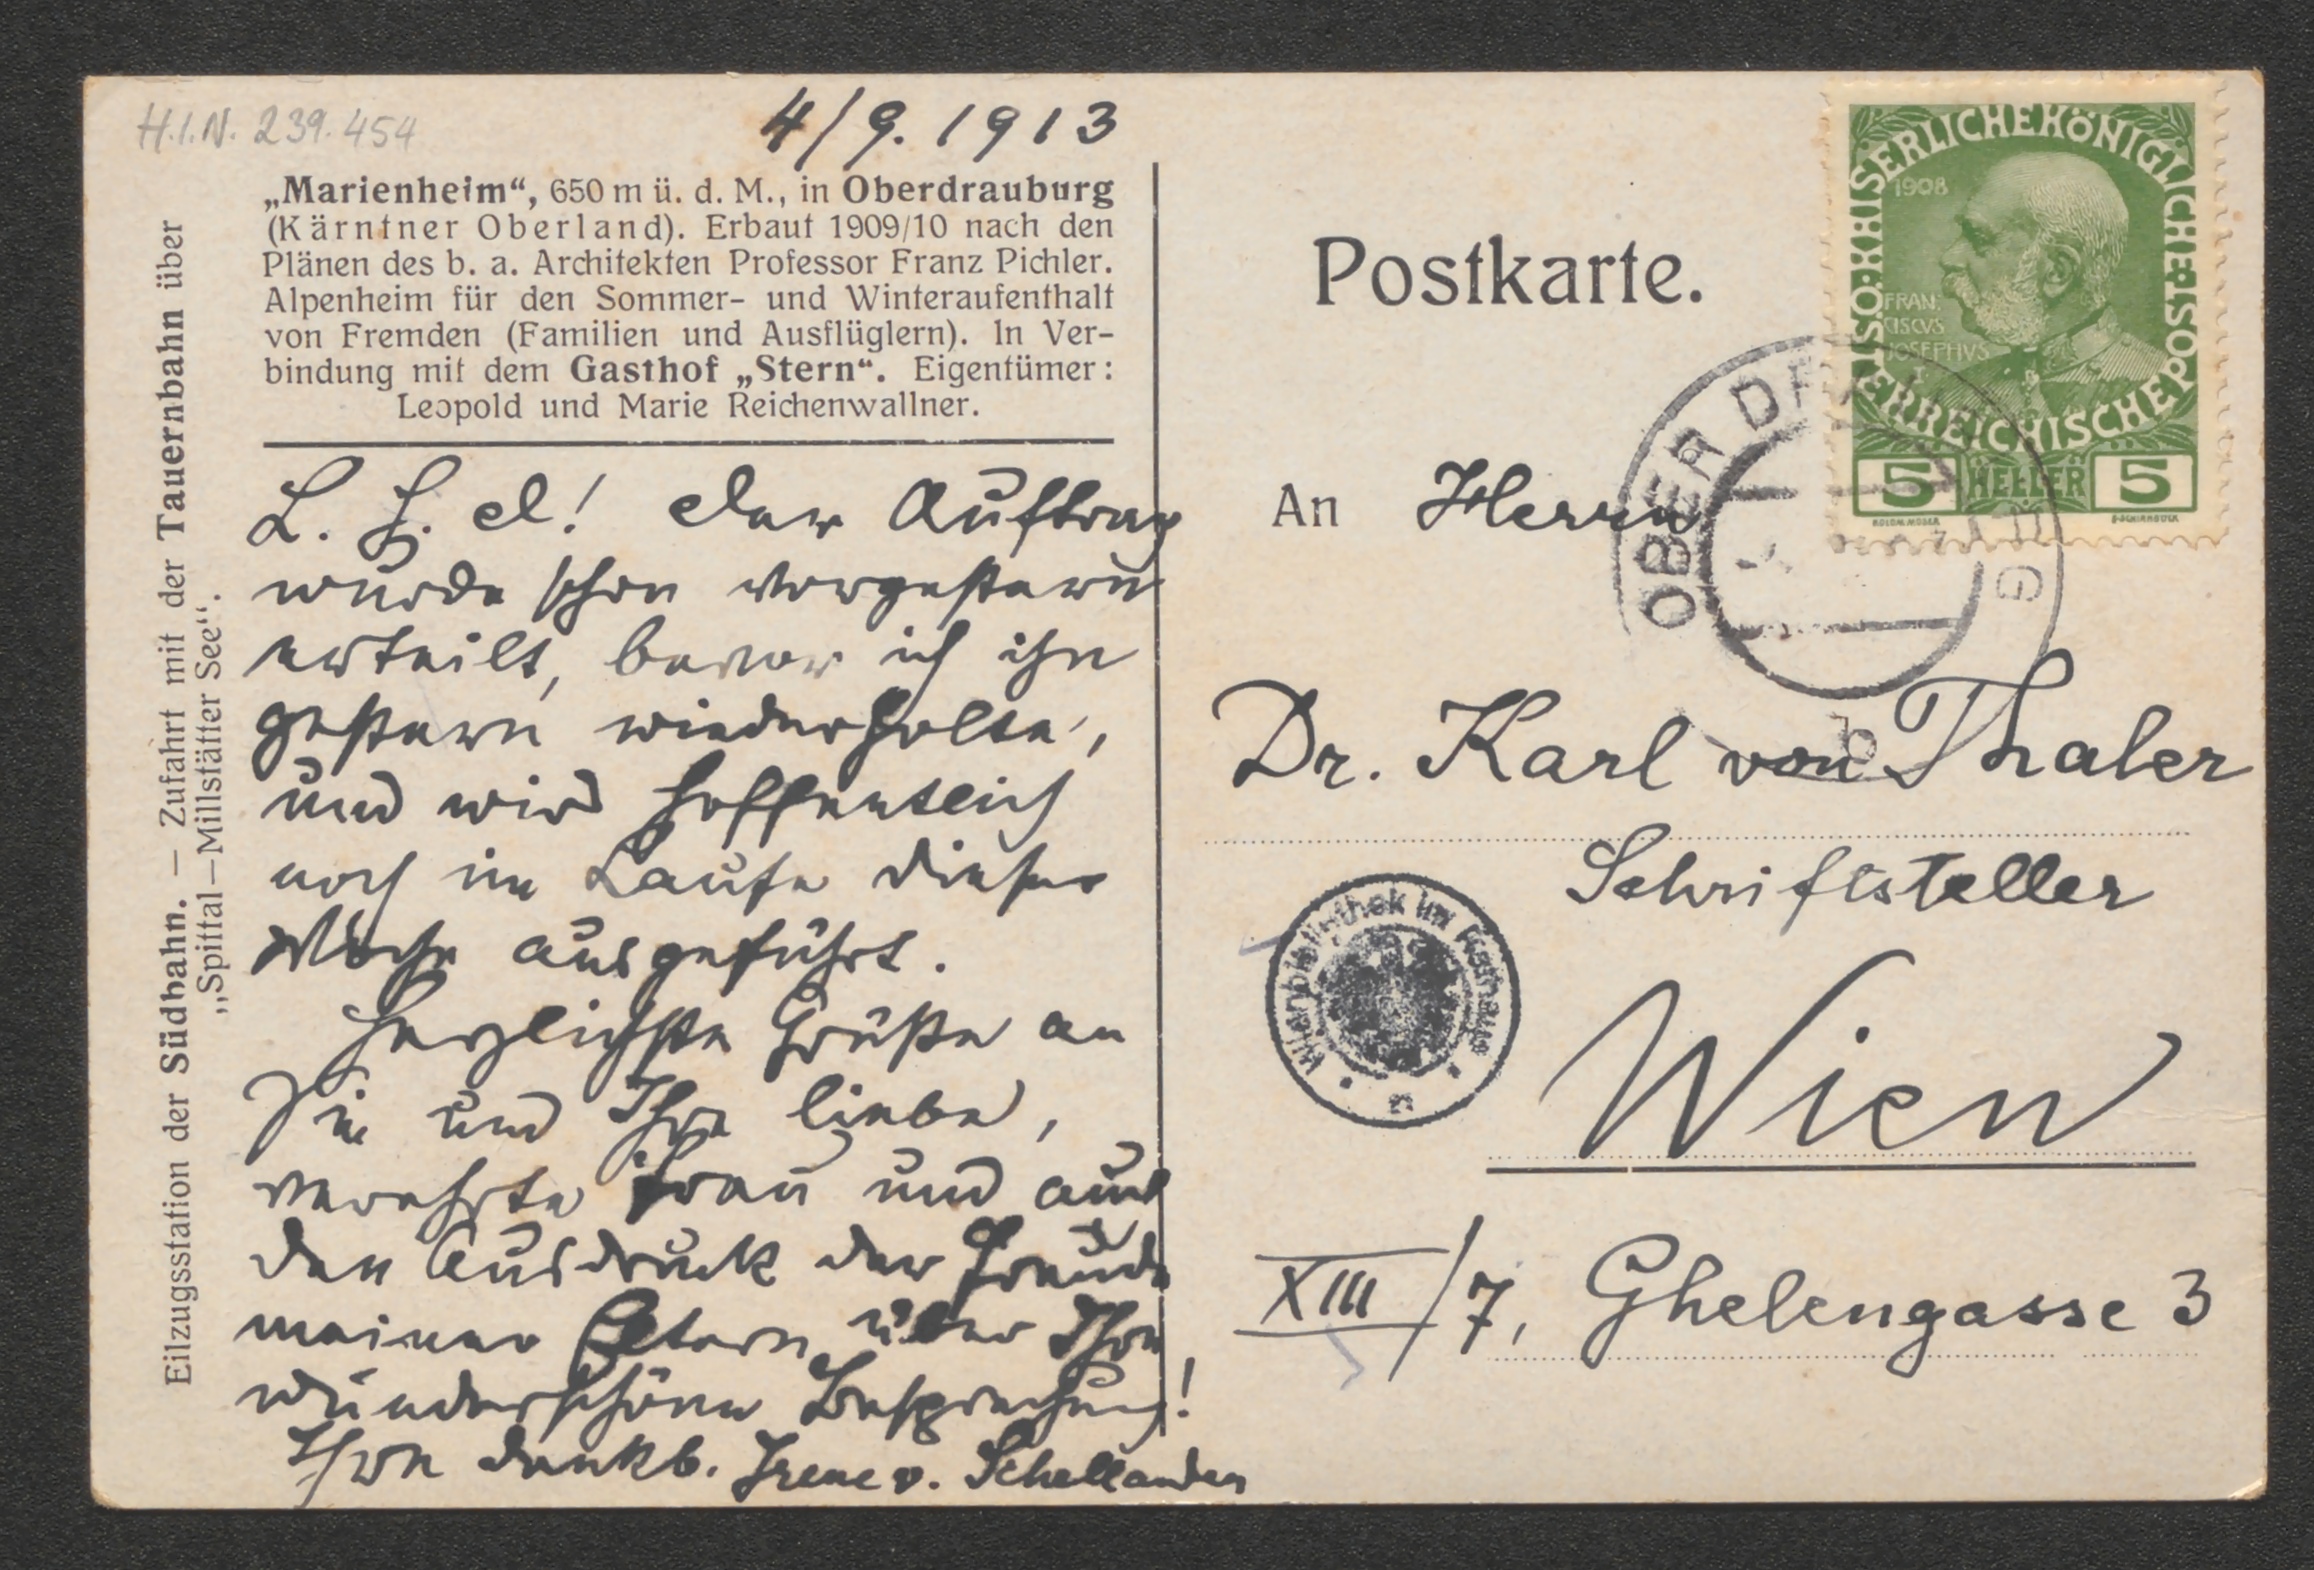 H.I.N. 239.454
4/9. 1913
„Marienheim“, 650 m ü. d. M., in Oberdrauburg
(Kärntner Oberland). Erbaut 1909/10 nach den
Plänen des b. a. Architekten Professor Franz Pichler.
Alpenheim für den Sommer- und Winteraufenthalt
von Fremden (Familien und Ausflüglern). In Ver-
bindung mit dem Gasthof „Stern“. Eigentümer:
Leopold und Marie Reichenwallner.
Eilzugsstation der Südbahn. — Zufahrt mit der Tauernbahn über
„Spittal—Millstätter See“.
L. H. d! der Auftrag
wurde schon vorgestern
erteilt, bevor ich ihn
gestern wiederholte,
und wird hoffentlich
noch im Laufe dieser
Woche ausgeführt.
Herzlichste Grüße an
Sie und Ihre liebe,
verehrte Frau und auch
den Ausdruck der Freude
meiner Eltern über Ihre
wunderschöne Besprechung!
Ihre dankb. Irene v. Schellander
Postkarte.
KAISERLICHE KÖNIGLICHE
ÖSTERREICHISCHE POST
1908
FRAN
CISCVS
JOSEPHVS
I
5 HELLER 5
KOLOM. MOSER
F. SCHIRNBÖCK
OBERDRAUBURG
b
An Herrn
Dr. Karl von Thaler
Schriftsteller
Wienbibliothek im Rathaus
Wien
XIII/7, Ghelengasse 3